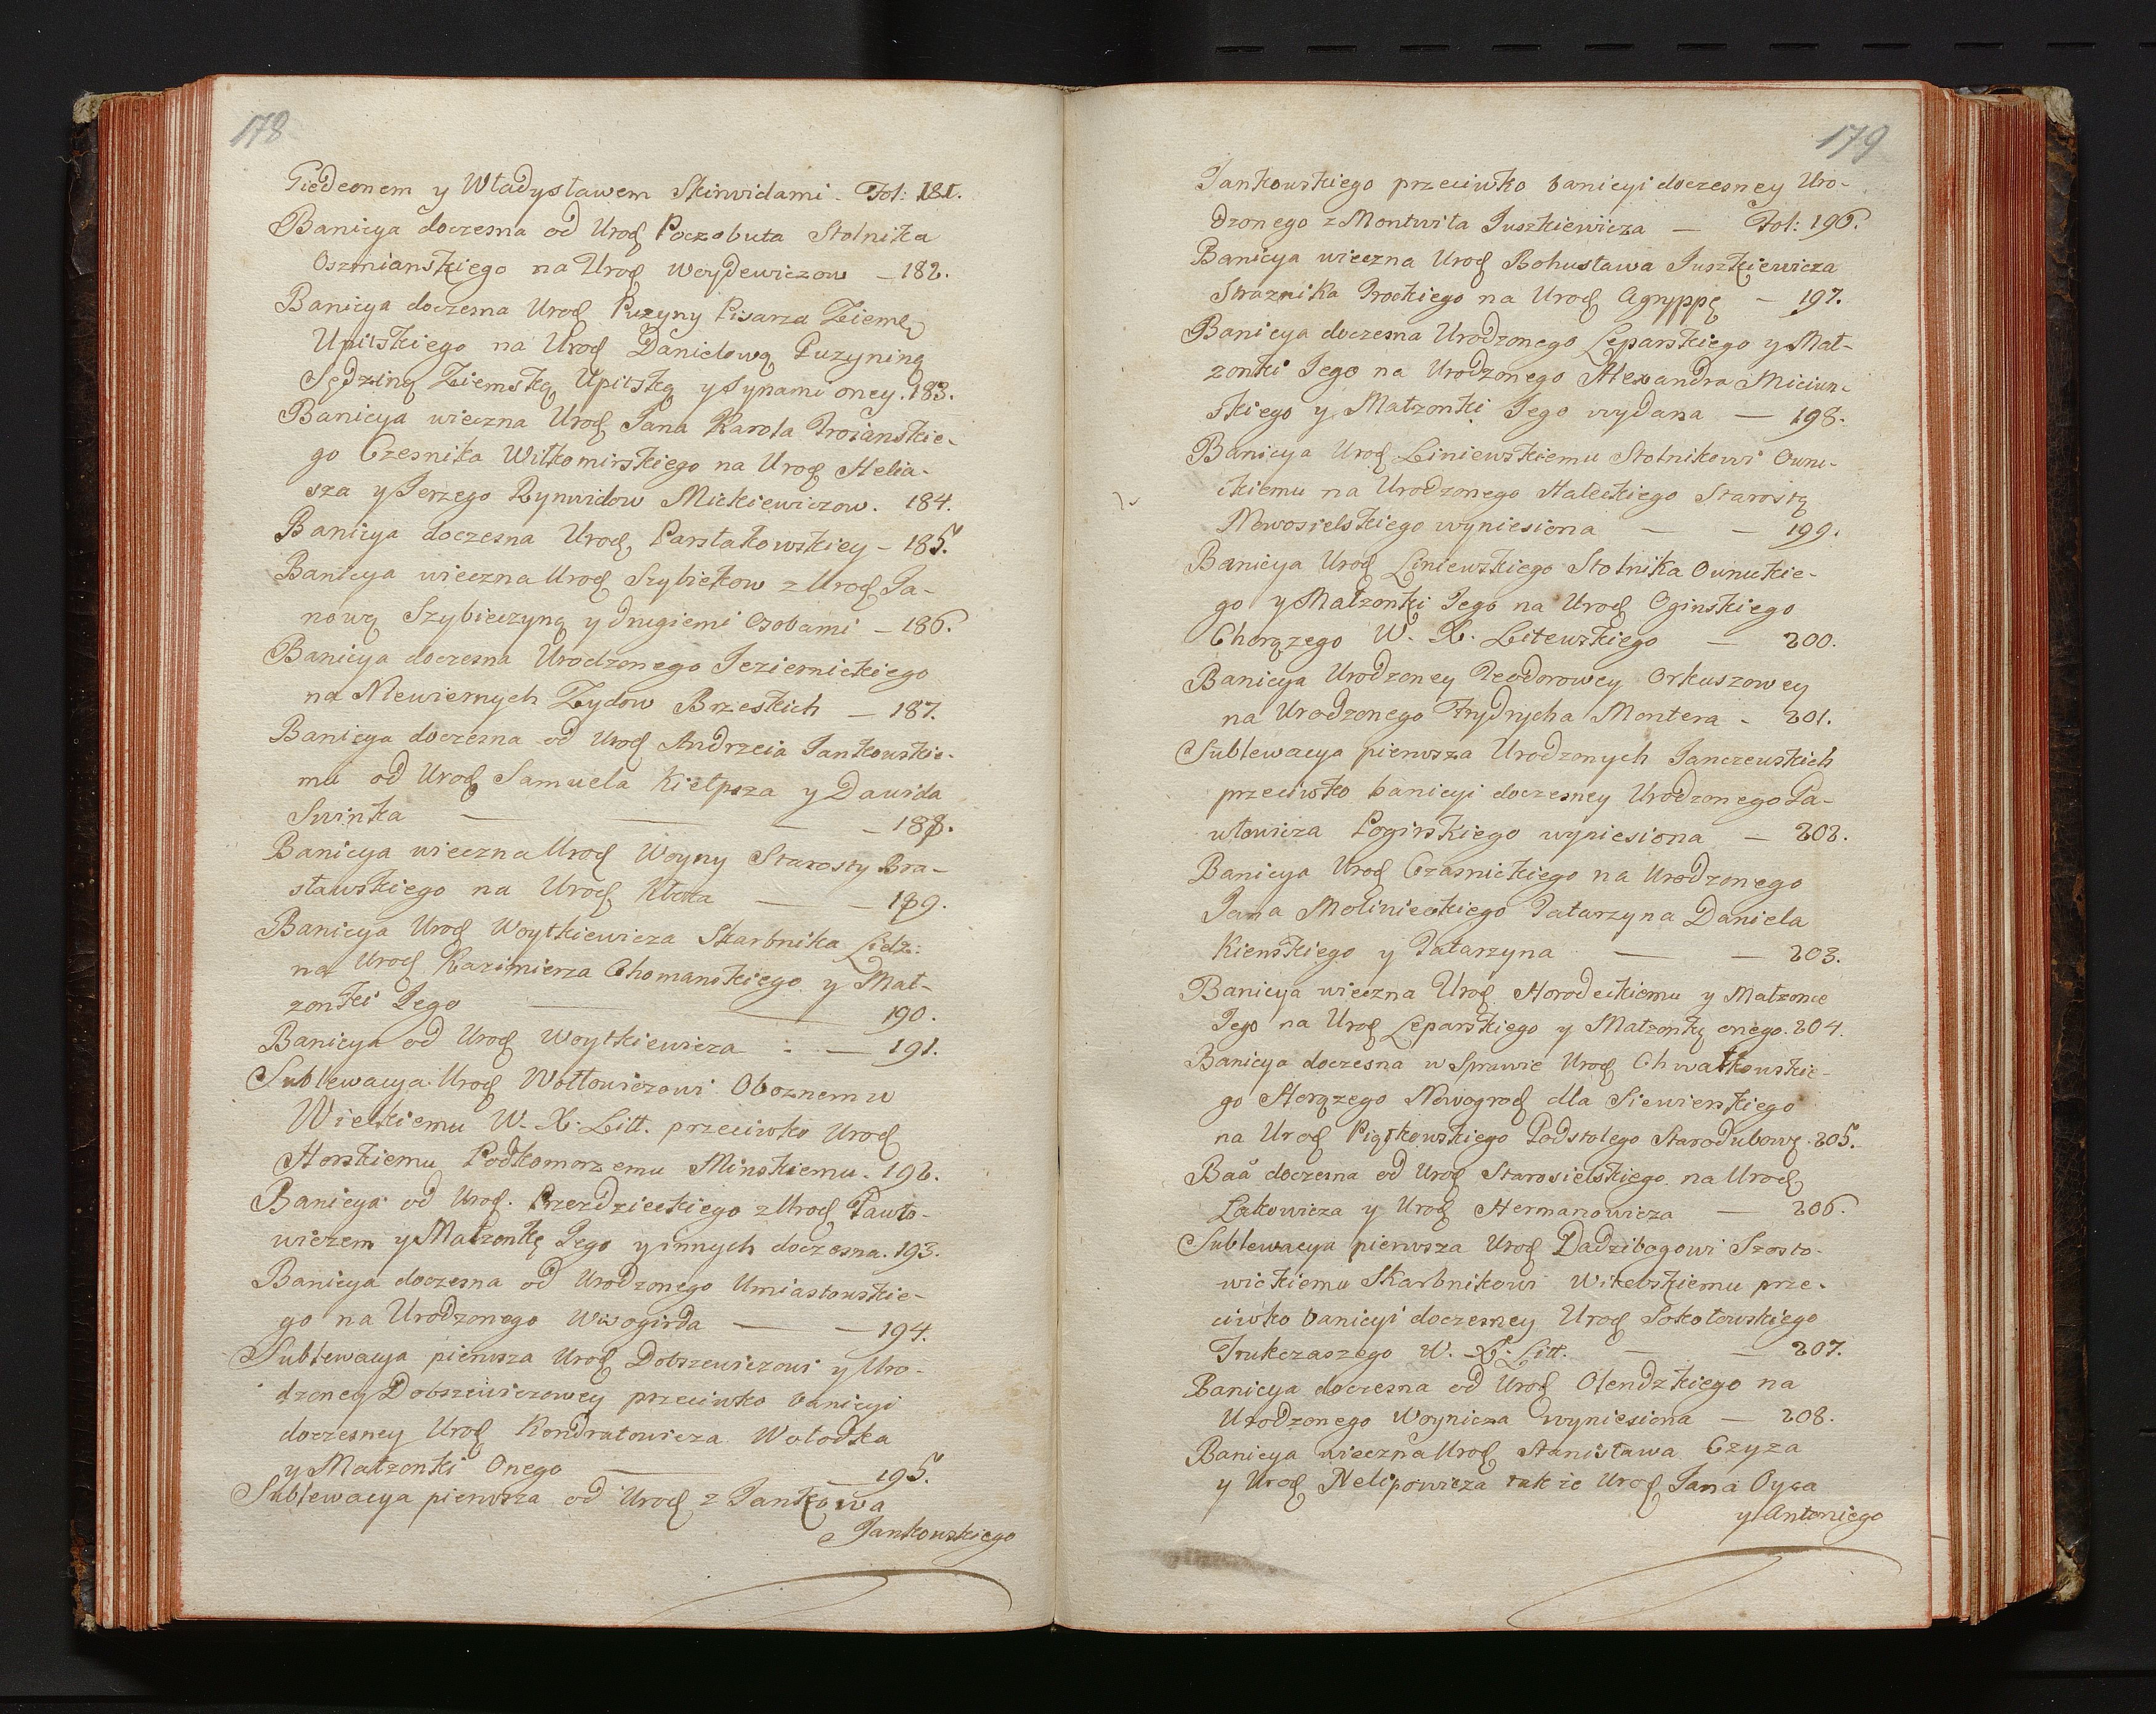 178
Giedeonem y Władysławem Skinwidami. Fol: 181.
Banicya doczesna od Urod Poczobuta Stolnika
Oszmianskiego na Urod Woydewiczow — 182.
Banicya doczesna Urod Puzyny Pisarza Ziemą
Upitskiego na Urod Danielową Puzyniną
Sędziną Ziemską Upitską y Synami oney. 183.
Banicya wieczna Urod Jana Karola Troianskie-
go Czesnika Wiłkomirskiego na Urod Helia-
sza y Jerzego Rynwidow Mickiewiczow. 184.
Banicya doczesna Urod Parstakowskiey — 185.
Banicya wieczna Urod Szybiekow z Urod Ja-
nową Szybieczyną y drugiemi Osobami — 186.
Banicya doczesna Urodzonego Jeziernickiego
na Niewiernych Zydow Brzeskich — 187.
Banicya doczesna od Urod Andrzeia Jankowskie-
mu od Urod Samuela Kiełpsza y Dawida
Swinka — — — — 188.
Banicya wieczna Urod Woyny Starosty Bra-
sławskiego na Urod — — 189.
Banicya Urod Woytkiewicza Skarbnika Lidz:
na Urod Kazimierza Chomanskiego y Mał-
zonki Jego — — 190.
Banicya od Urod Woytkiewicza : — 191.
Sublewacya Urod Wołłowiczowi Oboznemu
Wielkiemu W. X. Litt. przeciwko Urod
Horskiemu Podkomorzemu Minskiemu. 192.
Banicya od Urod. Przezdzieckiego z Urod Pawło-
wiczem y Małzonkę Jego y innych doczesna. 193.
Banicya doczesna od Urodzonego Umiastowskie-
go na Urodzonego Wizogirda — — 194.
Sublewacya pierwsza Urod Dobszewiczowi y Uro-
dzoney Dobszewiczowey przeciwko banicyi
doczesney Urod Kondratowicza Wołodka
y Małzonki Onego — — 195.
Sublewacya pierwsza od Urod z Jankowa
Jankowskiego
179
Jankowskiego przeciwko banicyi doczesney Uro-
dzonego z Montwiła Juszkiewicza — Fol: 196.
Banicya wieczna Urod Bohusława Juszkiewicza
Straznika Trockiego na Urod Agryppę — 197.
Banicya doczesna Urodzonego Leparskiego y Mał-
zonki Jego na Urodzonego Alexandra Miciun-
skiego y Małzonki Jego wydana — 198.
Banicya Urod Liniewskiemu Stolnikowi Owru-
ckiemu na Urodzonego Haleckiego Starostę
Nowosielskiego wyniesiona — — 199.
Banicya Urod Liniewskiego Stolnika Owruckie-
go y Małzonki Jego na Urod Oginskiego
Chorązego W. X. Litewskiego — 200.
Banicya Urodzoney Teodorowey Orkuszowey
na Urodzonego Frydrycha Montera — 201.
Sublewacya pierwsza Urodzonych Janczewskich
przeciwko banicyi doczesney Urodzonego Pa-
włowicza Pogirskiego wyniesiona — 202.
Banicya Urod Czasnickiego na Urodzonego
Jana Molinieckiego Tatarzyna Daniela
Kienskiego y Tatarzyna — — 203.
Banicya wieczna Urod Horodeckiemu y Małzonce
Jego na Urod Leparskiego y Małzonkę onego. 204.
Banicya doczesna w Sprawie Urod Chwałkowskie-
go Horązego Nowogrod dla Siewierskiego
na Urod Piątkowskiego Podstolego Starodubowę. 205.
Baa doczesna od Urod Starosielskiego na Urod
Lakowicza y Urod Hermanowicza — 206.
Sublewacya pierwsza Urod Dadzibogowi Szosto-
wickiemu Skarbnikowi Witebskiemu prze-
ciwko banicyi doczesney Urod Sokołowskiego
Trukczaszego W. X. Litt. — — 207.
Banicya doczesna od Urod Olendzkiego na
Urodzonego Woynicza wyniesiona — 208.
Banicya wieczna Urod Stanisława Czyza
y Urod Nelipowicza takze Urod Jana Oysa
y Antoniego